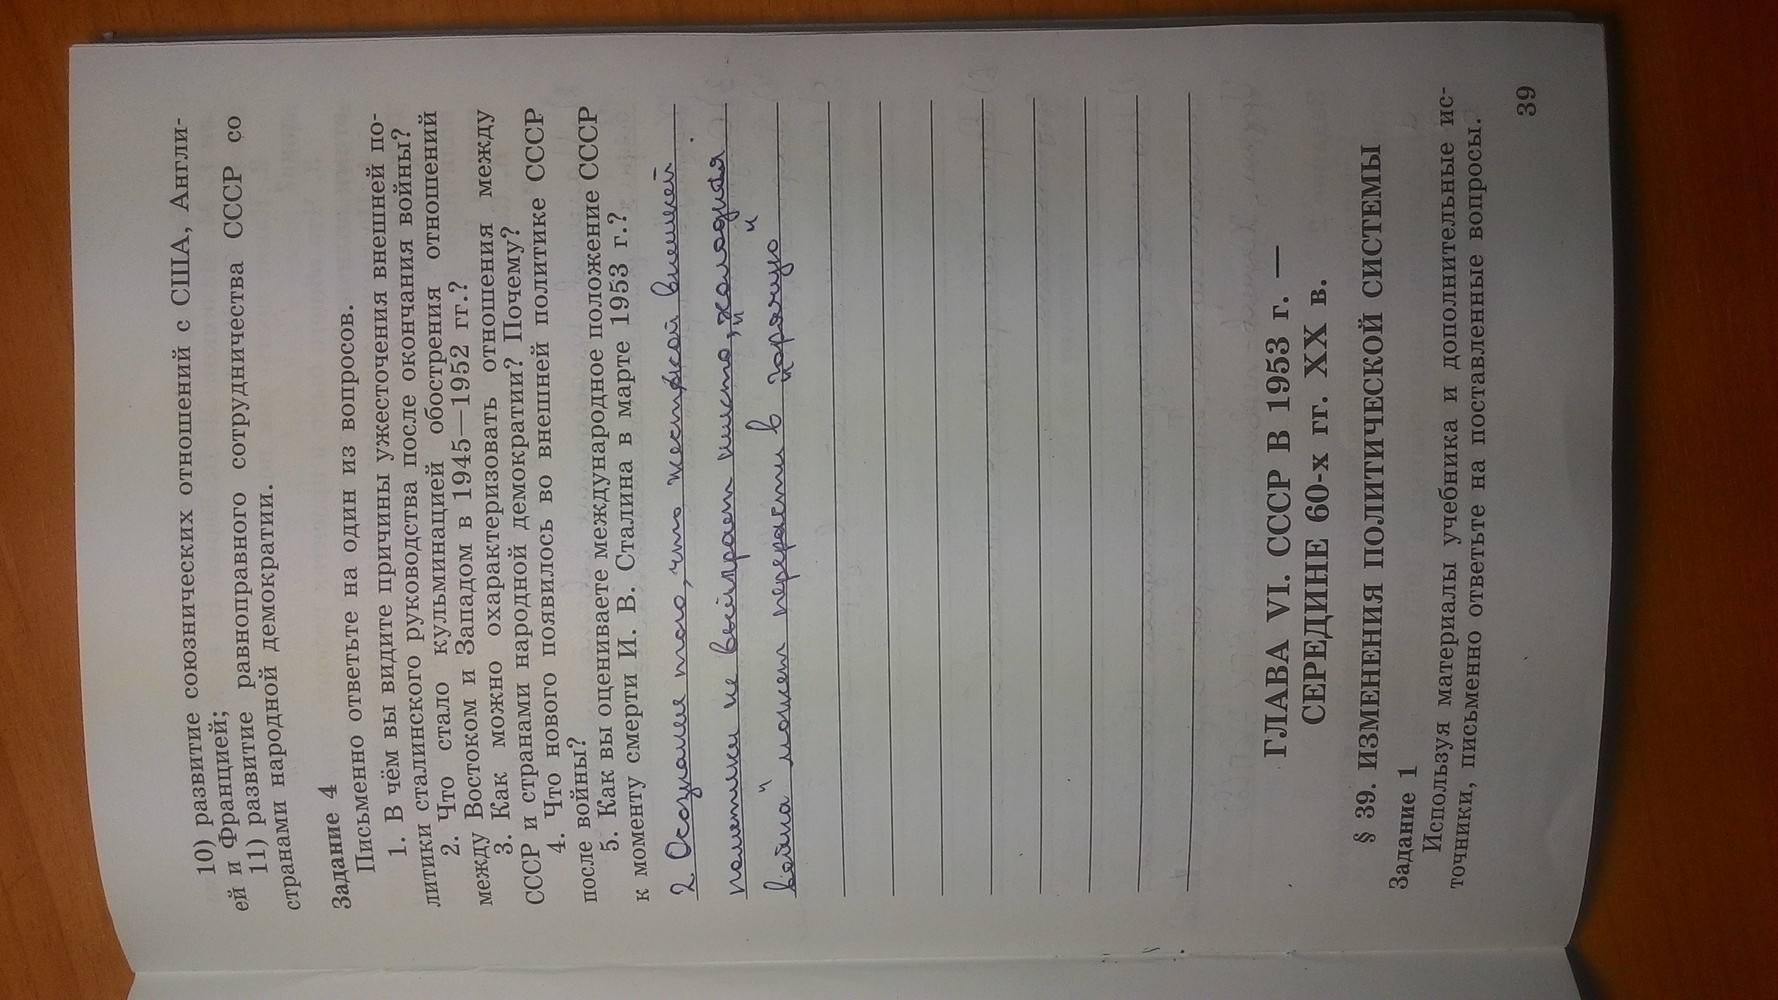 10) развитие союзнических отношений с США, Англи-
ей и Францией;
11) развитие равноправного сотрудничества СССР со
странами народной демократии.
Задание 4
Письменно ответьте на один из вопросов.
1. В чём вы видите причины ужесточения внешней по-
литики сталинского руководства после окончания войны?
2. Что стало кульминацией обострения отношений
между Востоком и Западом в 1945—1952 гг.?
3. Как можно охарактеризовать отношения между
СССР и странами народной демократии? Почему?
4. Что нового появилось во внешней политике СССР
после войны?
5. Как вы оцениваете международное положение СССР
к моменту смерти И. В. Сталина в марте 1953 г.?
2 Осознание того, что жесткой внешней
политики не выиграет никто, "холодная
война" может перерасти в "горячую"
ГЛАВА VI. СССР В 1953 г. —
СЕРЕДИНЕ 60-х гг. XX в.
§ 39. ИЗМЕНЕНИЯ ПОЛИТИЧЕСКОЙ СИСТЕМЫ
Задание 1
Используя материалы учебника и дополнительные ис-
точники, письменно ответьте на поставленные вопросы.
39